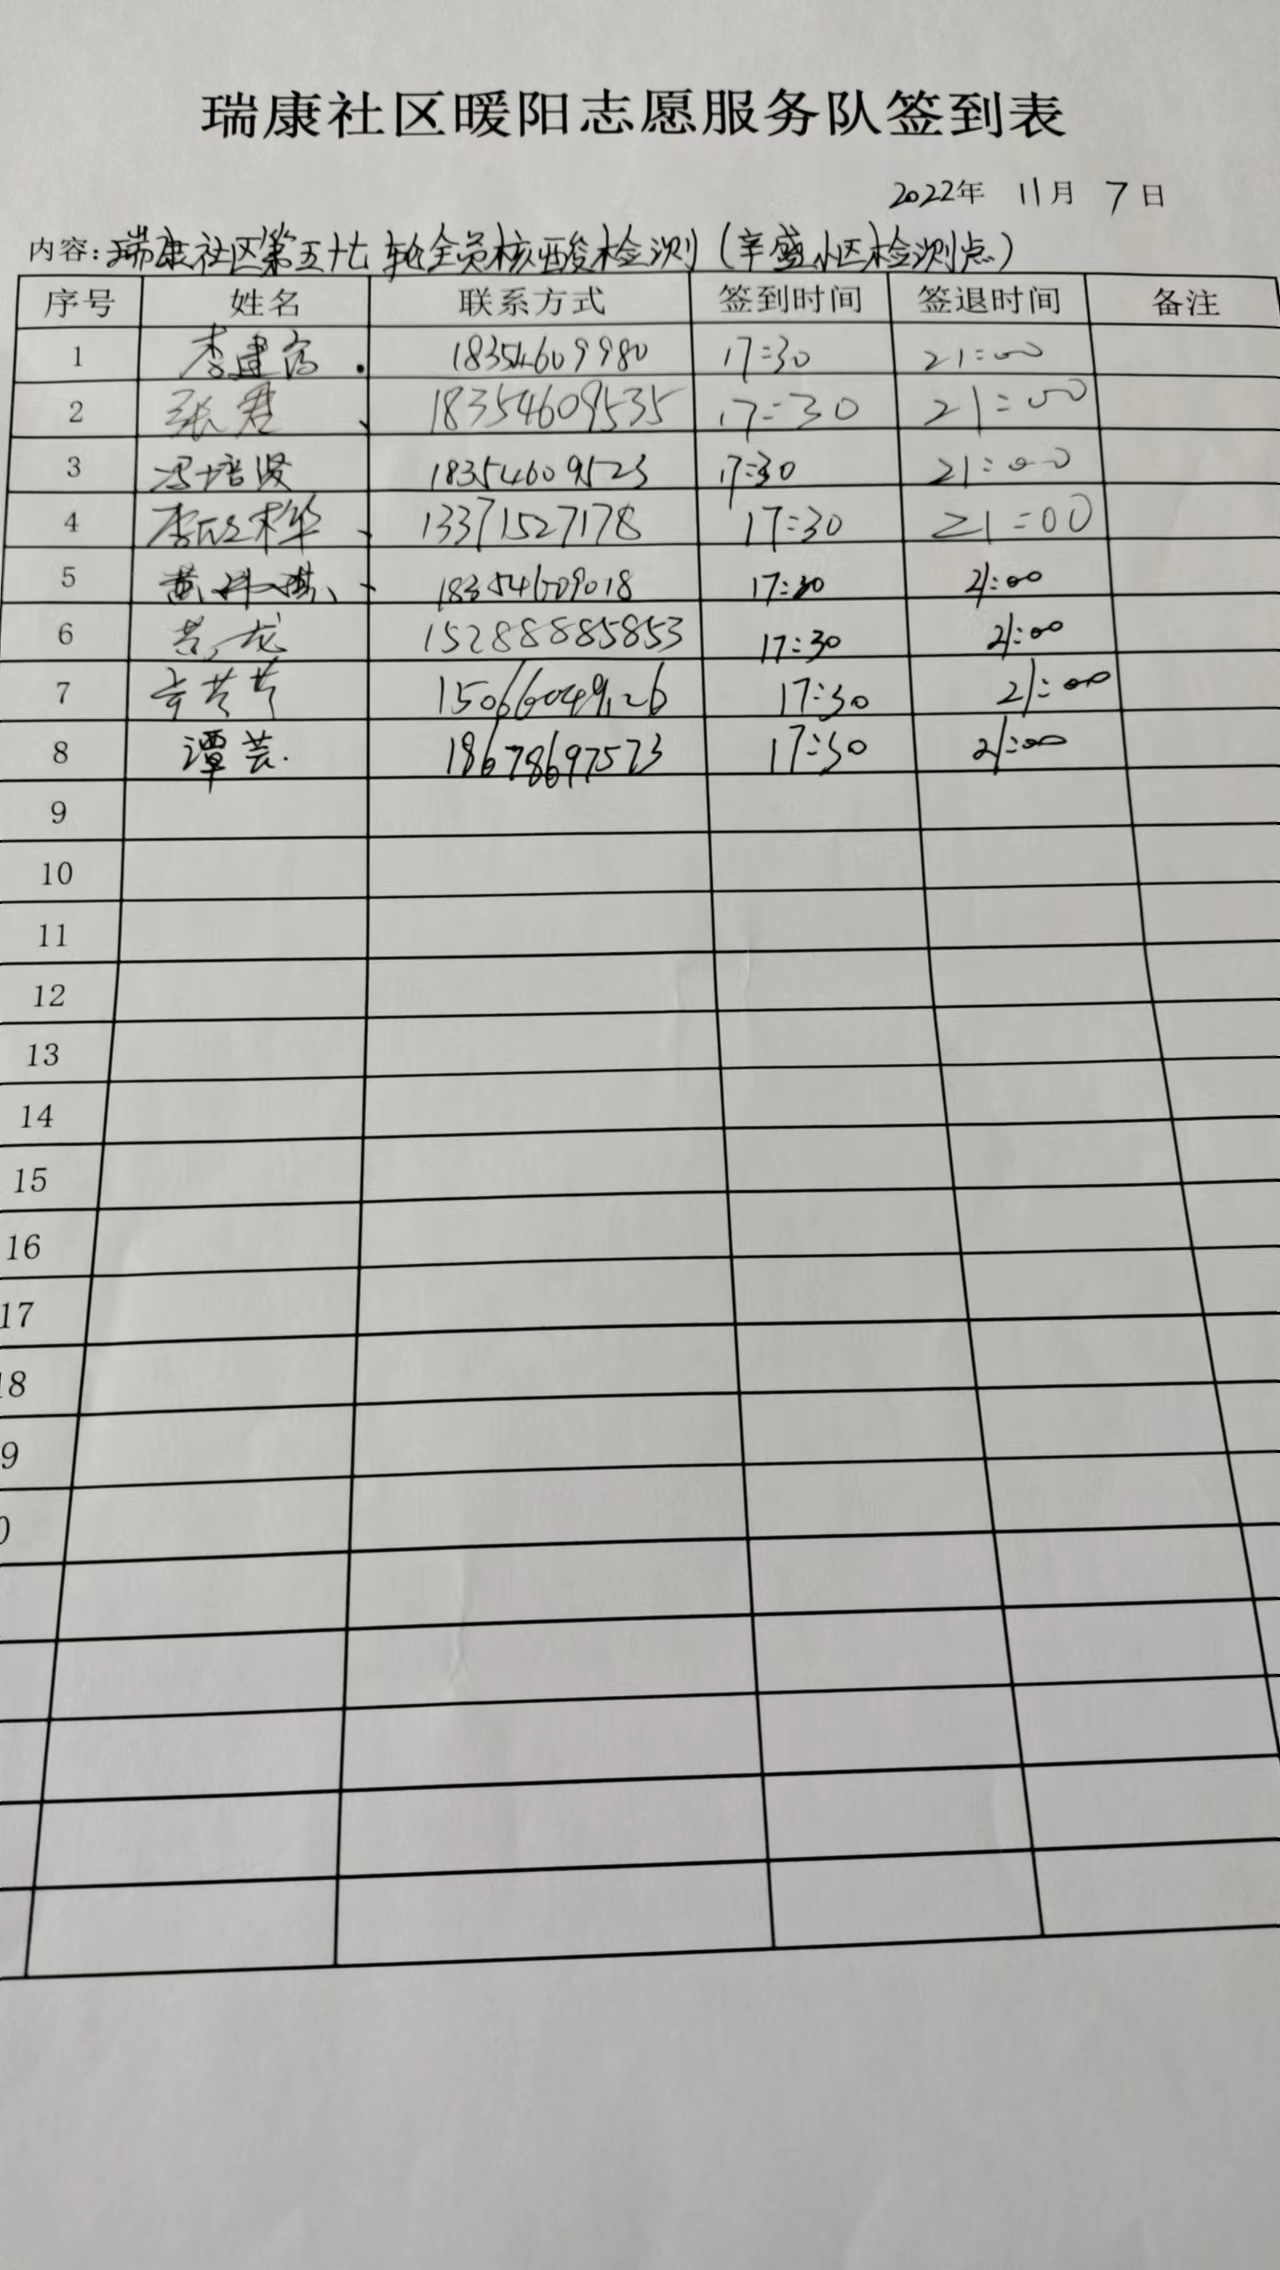 瑞康社区暖阳志愿服务队签到表
2022年 11月 7日
内容:瑞康社区第五十七轮全员核酸检测(辛盛小区检测点)
序号 姓名 联系方式 签到时间 签退时间 备注
1 李建 18354609980 17:30 21:00
2 张君 18354609535 17:30 21:00
3 冯培贤 18354609523 17:30 21:00
4 李 13371527178 17:30 21:00
5 黄 18354609018 17:30 21:00
6 龙 15288885853 17:30 21:00
7 15066049126 17:30 21:00
8 谭芸. 18678697573 17:30 21:00
9
10
11
12
13
14
15
16
17
18
9
0